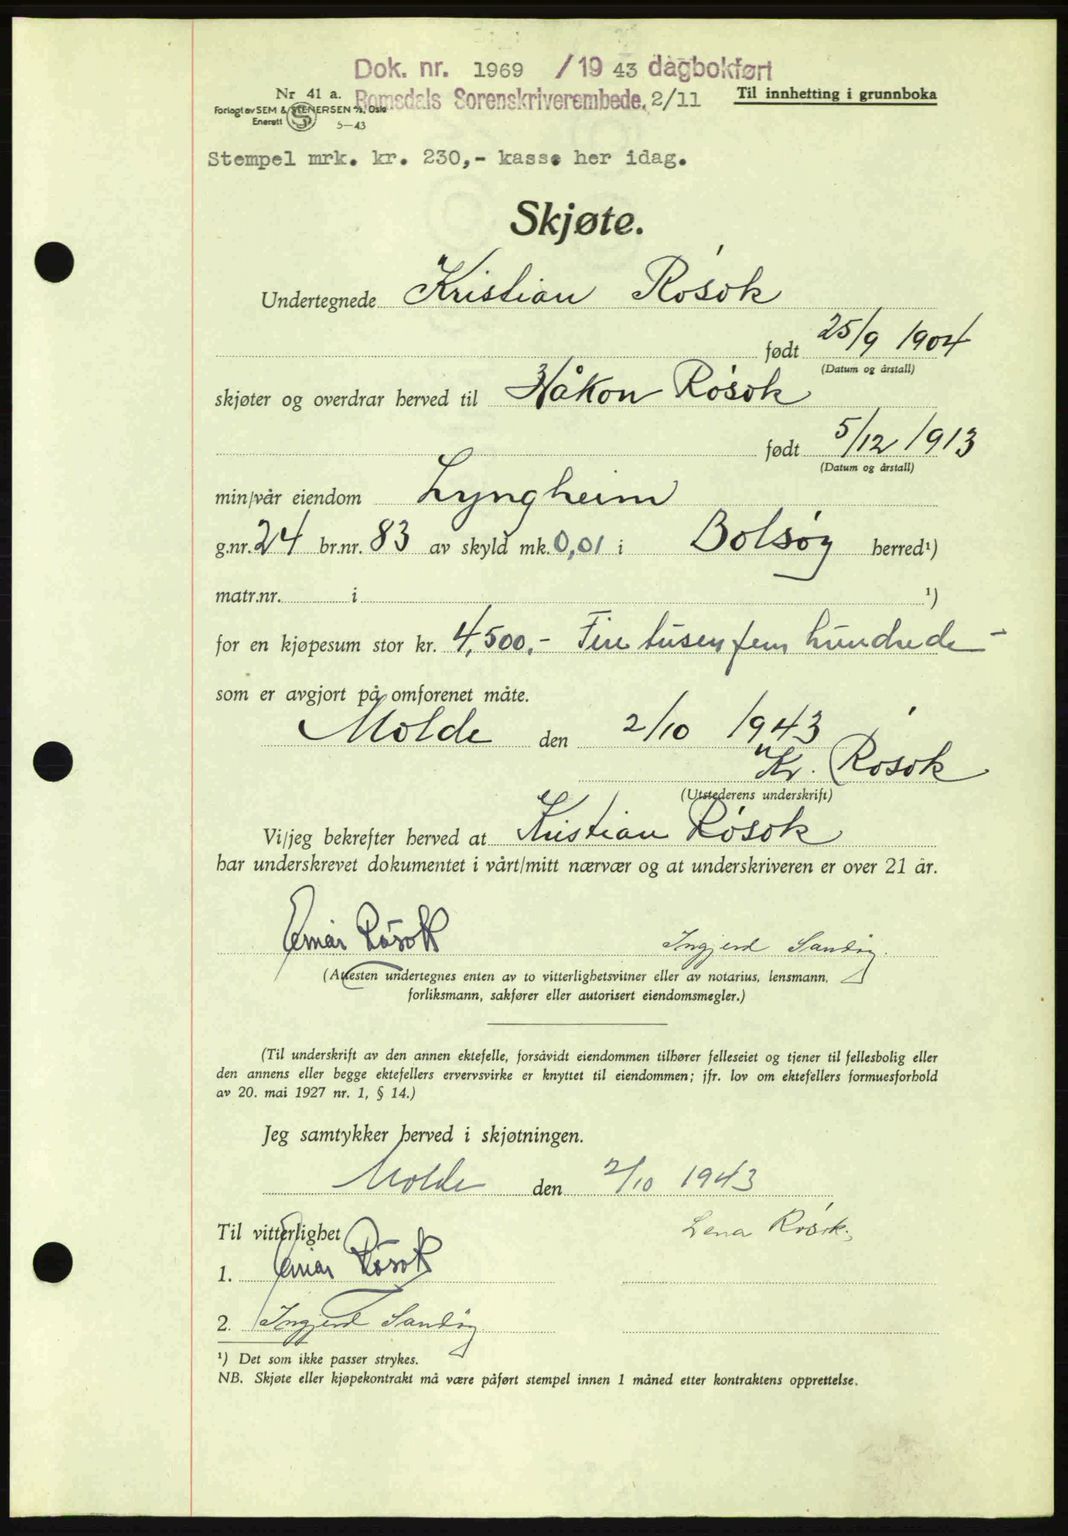 Dok. nr. 1969 /1943 dagbokført
Nr 41 a. Romsdals Sorenskriverembede. 2/11 Til innhetting i grunnboka
Forlagt av SEM & STENERSEN A/S, Oslo
Enerett S 5-43
Stempel mrk. kr. 230,- kasse her idag.
Skjøte.
Undertegnede Kristian Røsok
født 25/9 1904
(Datum og årstall)
skjøter og overdrar herved til Håkon Røsok
født 5/12 1913
(Datum og årstall)
min/vår eiendom Lyngheim
g.nr. 24 br.nr. 83 av skyld mk. 0,01 i Bolsøy herred¹)
matr.nr. i ¹)
for en kjøpesum stor kr. 4,500,- Fire tusen fem hundrede -
som er avgjort på omforenet måte.
Molde den 2/10 1943
Kr. Røsok
(Utstederens underskrift)
Vi/jeg bekrefter herved at Kristian Røsok
har underskrevet dokumentet i vårt/mitt nærvær og at underskriveren er over 21 år.
Røsok Ingjerd Sandøy.
(Attesten undertegnes enten av to vitterlighetsvitner eller av notarius, lensmann,
forliksmann, sakfører eller autorisert eiendomsmegler.)
(Til underskrift av den annen ektefelle, forsåvidt eiendommen tilhører felleseiet og tjener til fellesbolig eller
den annens eller begge ektefellers ervervsvirke er knyttet til eiendommen; jfr. lov om ektefellers formuesforhold
av 20. mai 1927 nr. 1, § 14.)
Jeg samtykker herved i skjøtningen.
Molde den 2/10 1943
Til vitterlighet Lena Røsok.
1. Røsok
2. Ingjerd Sandøy
¹) Det som ikke passer strykes.
NB. Skjøte eller kjøpekontrakt må være påført stempel innen 1 måned etter kontraktens opprettelse.